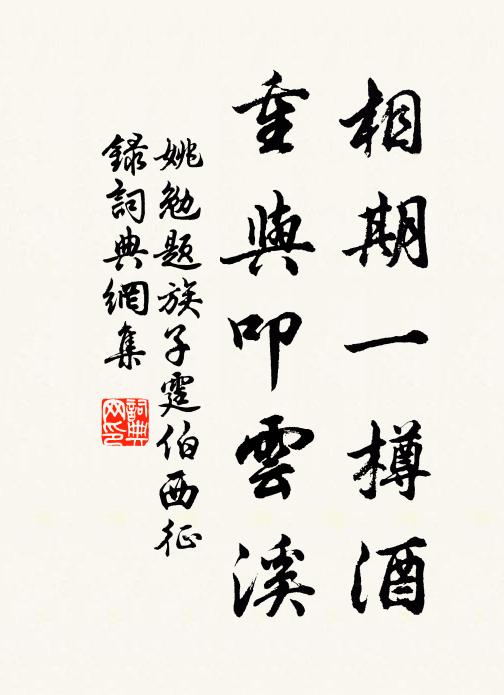 相期一樽酒
重與叩雲溪
姚勉題族子霆伯西征
錄詞典網集
詞典网印